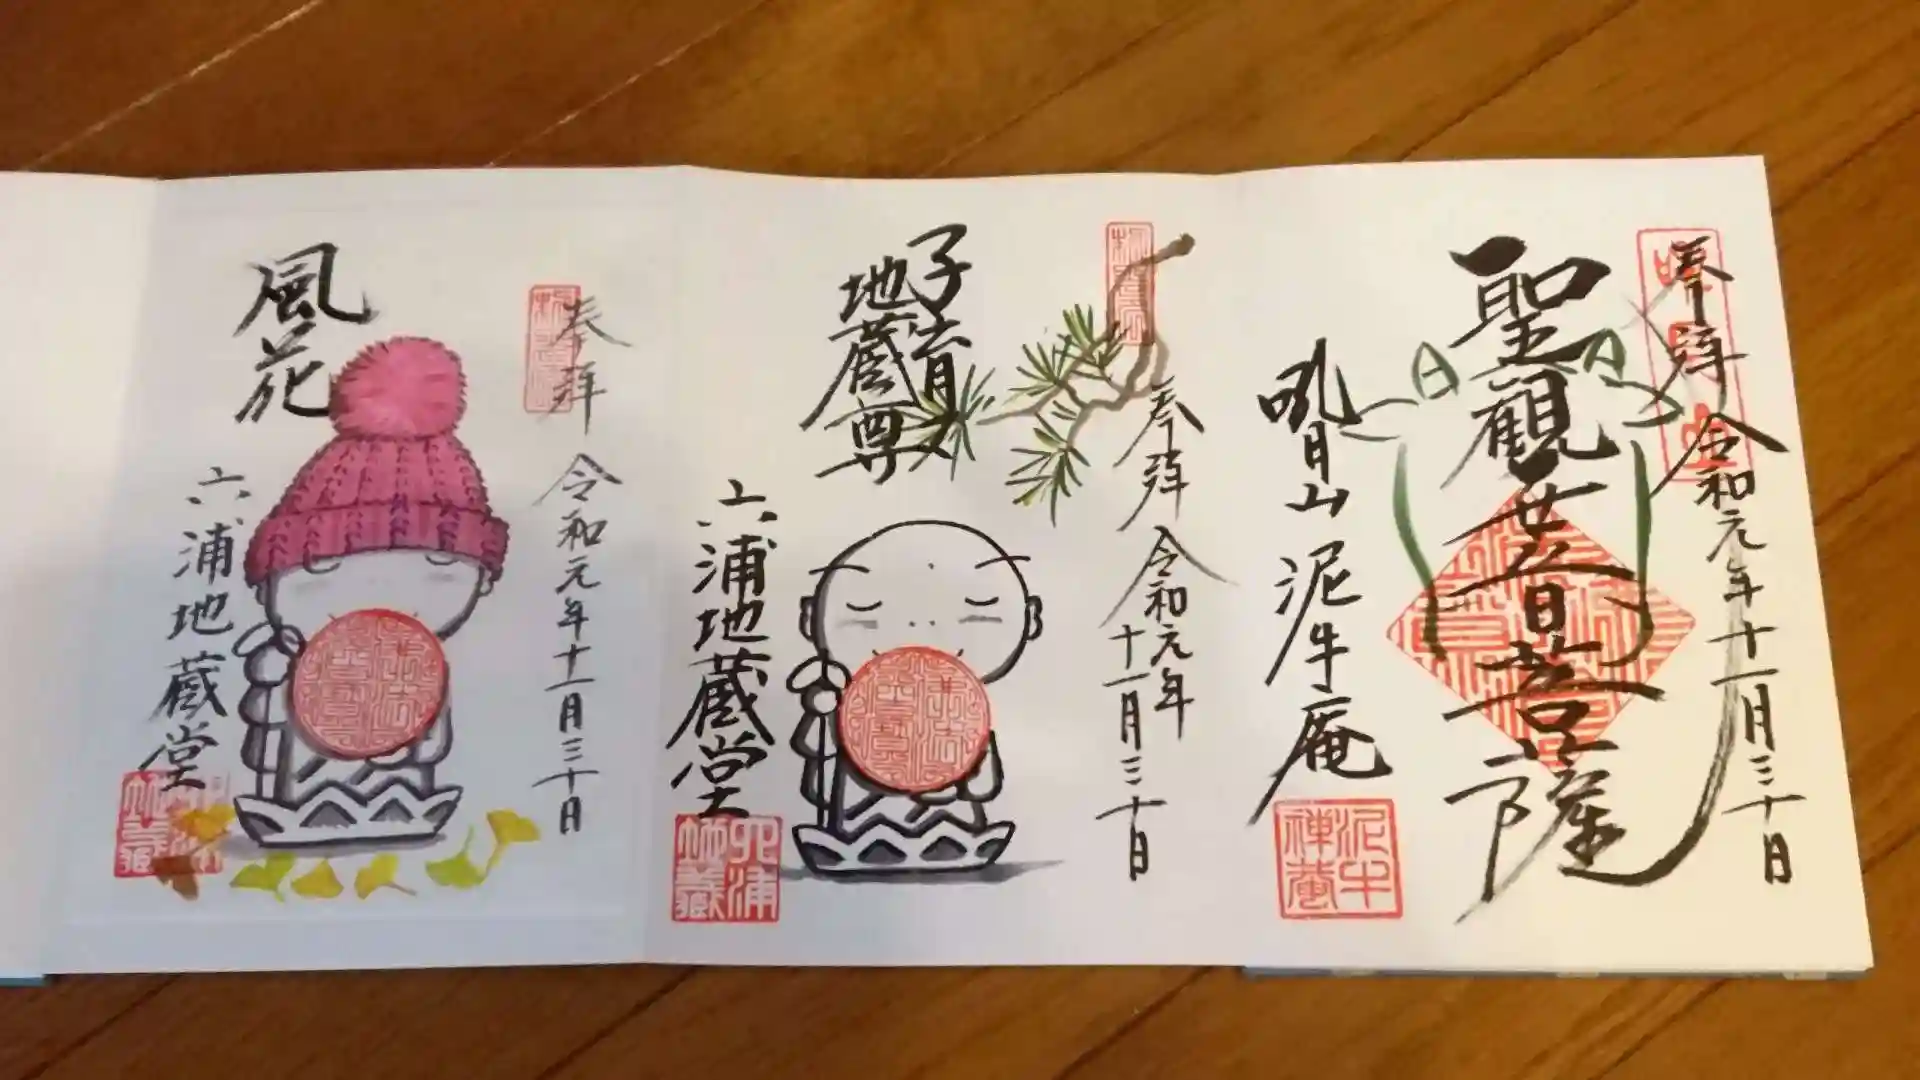 奉拝 令和元年十一月三十日
聖観世音菩薩
吼月山 泥牛庵
泥牛禅菴
奉拝 令和元年
十一月三十日
子育
地蔵尊
六浦地蔵堂
六浦地蔵
奉拝 令和元年十一月三十日
風花
六浦地蔵堂